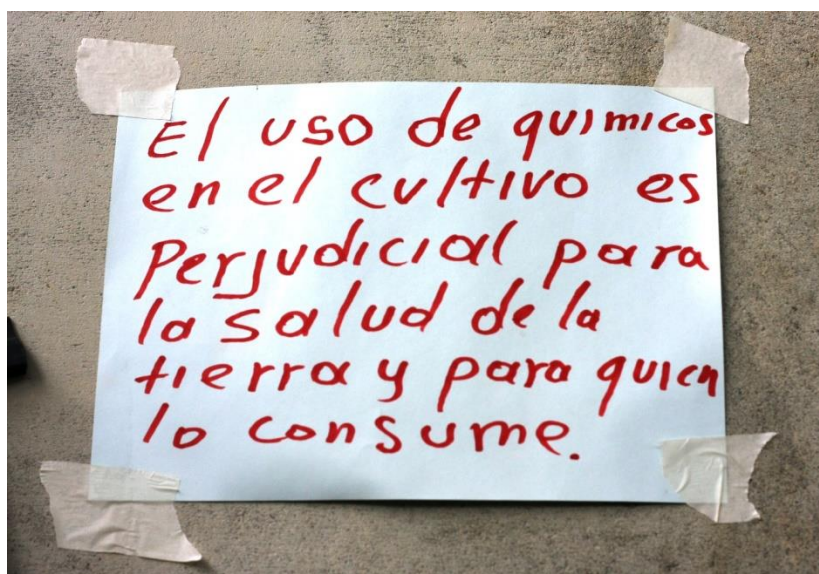 El uso de quimicos
en el cultivo es
perjudicial para
la salud de la
tierra y para quien
lo consume.